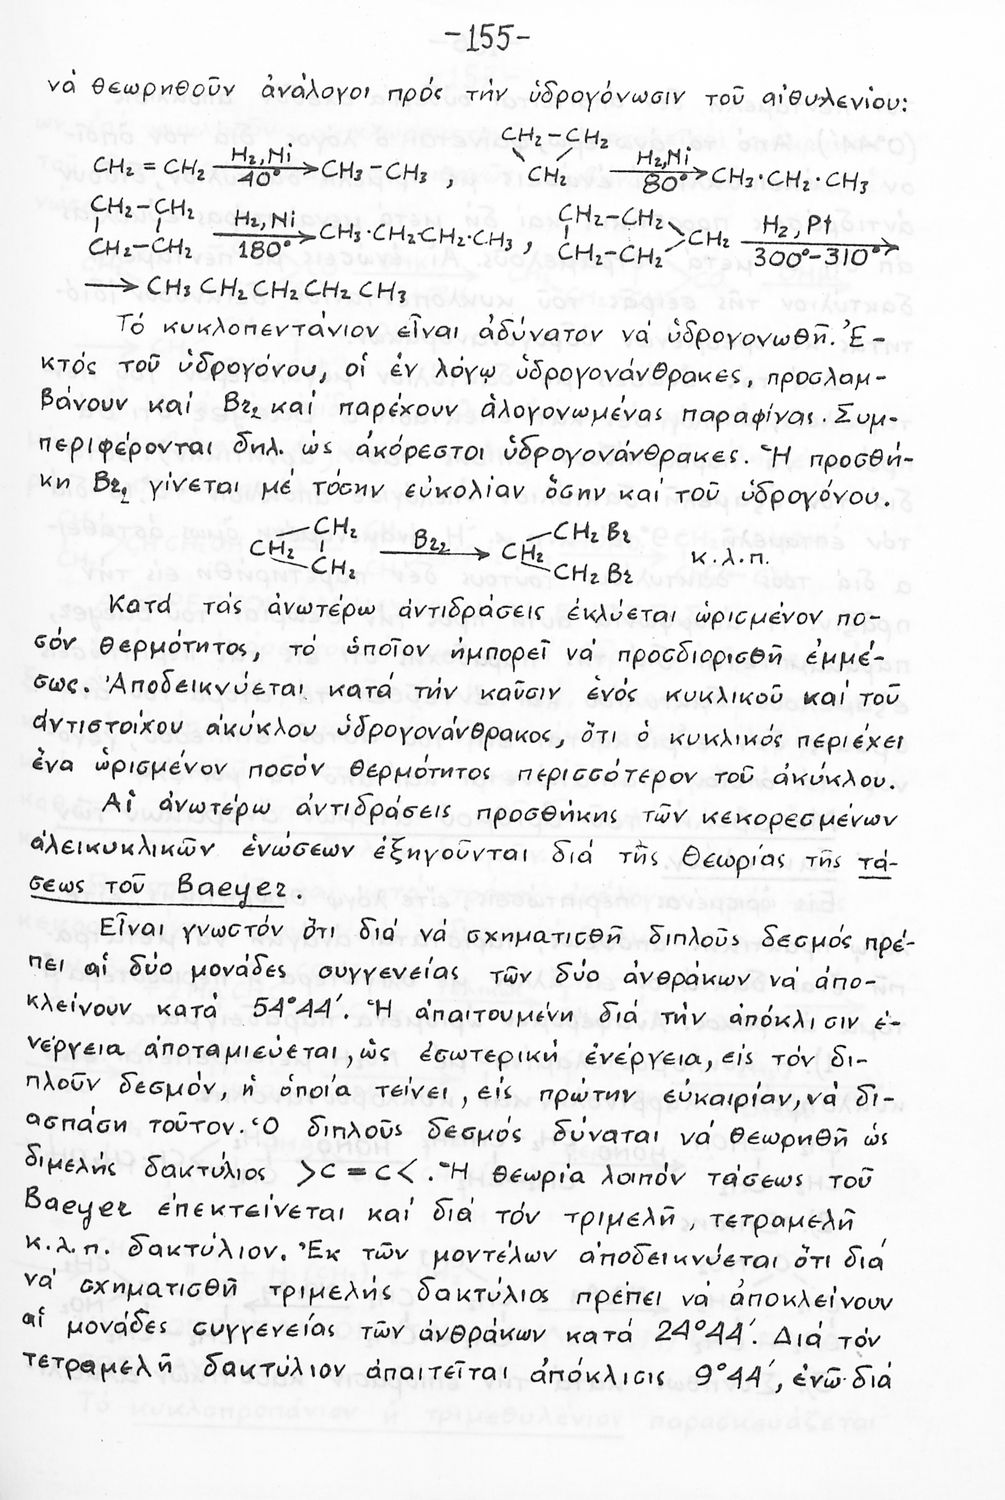 -155-
νά θεωρηθοῦν ἀνάλογοι πρός τήν ὑδρογόνωσιν τοῦ αἰθυλενίου:
CH₂-CH₂
CH₂ = CH₂ H₂,Ni 40° → CH₃-CH₃ , CH₂ H₂,Ni 80° → CH₃·CH₂·CH₃
CH₂-CH₂ H₂,Ni CH₂-CH₂ H₂,Pt
CH₂-CH₂ 180° → CH₃·CH₂-CH₂·CH₃ , CH₂-CH₂ CH₂ 300°-310° →
→ CH₃ CH₂ CH₂ CH₂ CH₃
Τό κυκλοπεντάνιον εἶναι ἀδύνατον νά ὑδρογονωθῆ. Ἐ-
κτός τοῦ ὑδρογόνου, οἱ ἐν λόγῳ ὑδρογονάνθρακες, προσλαμ-
βάνουν καί Br₂ καί παρέχουν ἁλογονωμένας παραφίνας. Συμ-
περιφέρονται δηλ. ὡς ἀκόρεστοι ὑδρογονάνθρακες. Ἡ προσθή-
κη Br₂ γίνεται μέ τόσην εὐκολίαν ὅσην καί τοῦ ὑδρογόνου.
CH₂ CH₂ Br
CH₂ Br₂ → CH₂ κ.λ.π.
CH₂ CH₂ Br
Κατά τάς ἀνωτέρω ἀντιδράσεις ἐκλύεται ὡρισμένον πο-
σόν θερμότητος, τό ὁποῖον ἠμπορεῖ νά προσδιορισθῆ ἐμμέ-
σως. Ἀποδεικνύεται κατά τήν καῦσιν ἑνός κυκλικοῦ καί τοῦ
ἀντιστοίχου ἀκύκλου ὑδρογονάνθρακος, ὅτι ὁ κυκλικός περιέχει
ἕνα ὡρισμένον ποσόν θερμότητος περισσότερον τοῦ ἀκύκλου.
Αἱ ἀνωτέρω ἀντιδράσεις προσθήκης τῶν κεκορεσμένων
ἀλεικυκλικῶν ἑνώσεων ἐξηγοῦνται διά τῆς θεωρίας τῆς τά-
σεως τοῦ Baeyer.
Εἶναι γνωστόν ὅτι διά νά σχηματισθῆ διπλοῦς δεσμός πρέ-
πει αἱ δύο μονάδες συγγενείας τῶν δύο ἀνθράκων νά ἀπο-
κλείνουν κατά 54°44´. Ἡ ἀπαιτουμένη διά τήν ἀπόκλισιν ἐ-
νέργεια ἀποταμιεύεται, ὡς ἐσωτερική ἐνέργεια, εἰς τόν δι-
πλοῦν δεσμόν, ἡ ὁποία τείνει, εἰς πρώτην εὐκαιρίαν, νά δι-
ασπάση τοῦτον. Ὁ διπλοῦς δεσμός δύναται νά θεωρηθῆ ὡς
διμελής δακτύλιος >C=C<. Ἡ θεωρία λοιπόν τάσεως τοῦ
Baeyer ἐπεκτείνεται καί διά τόν τριμελῆ, τετραμελῆ
κ.λ.π. δακτύλιον. Ἐκ τῶν μοντέλων ἀποδεικνύεται ὅτι διά
νά σχηματισθῆ τριμελής δακτύλιος πρέπει νά ἀποκλείνουν
αἱ μονάδες συγγενείας τῶν ἀνθράκων κατά 24°44´. Διά τόν
τετραμελῆ δακτύλιον ἀπαιτεῖται ἀπόκλισις 9°44´, ἐνῶ διά